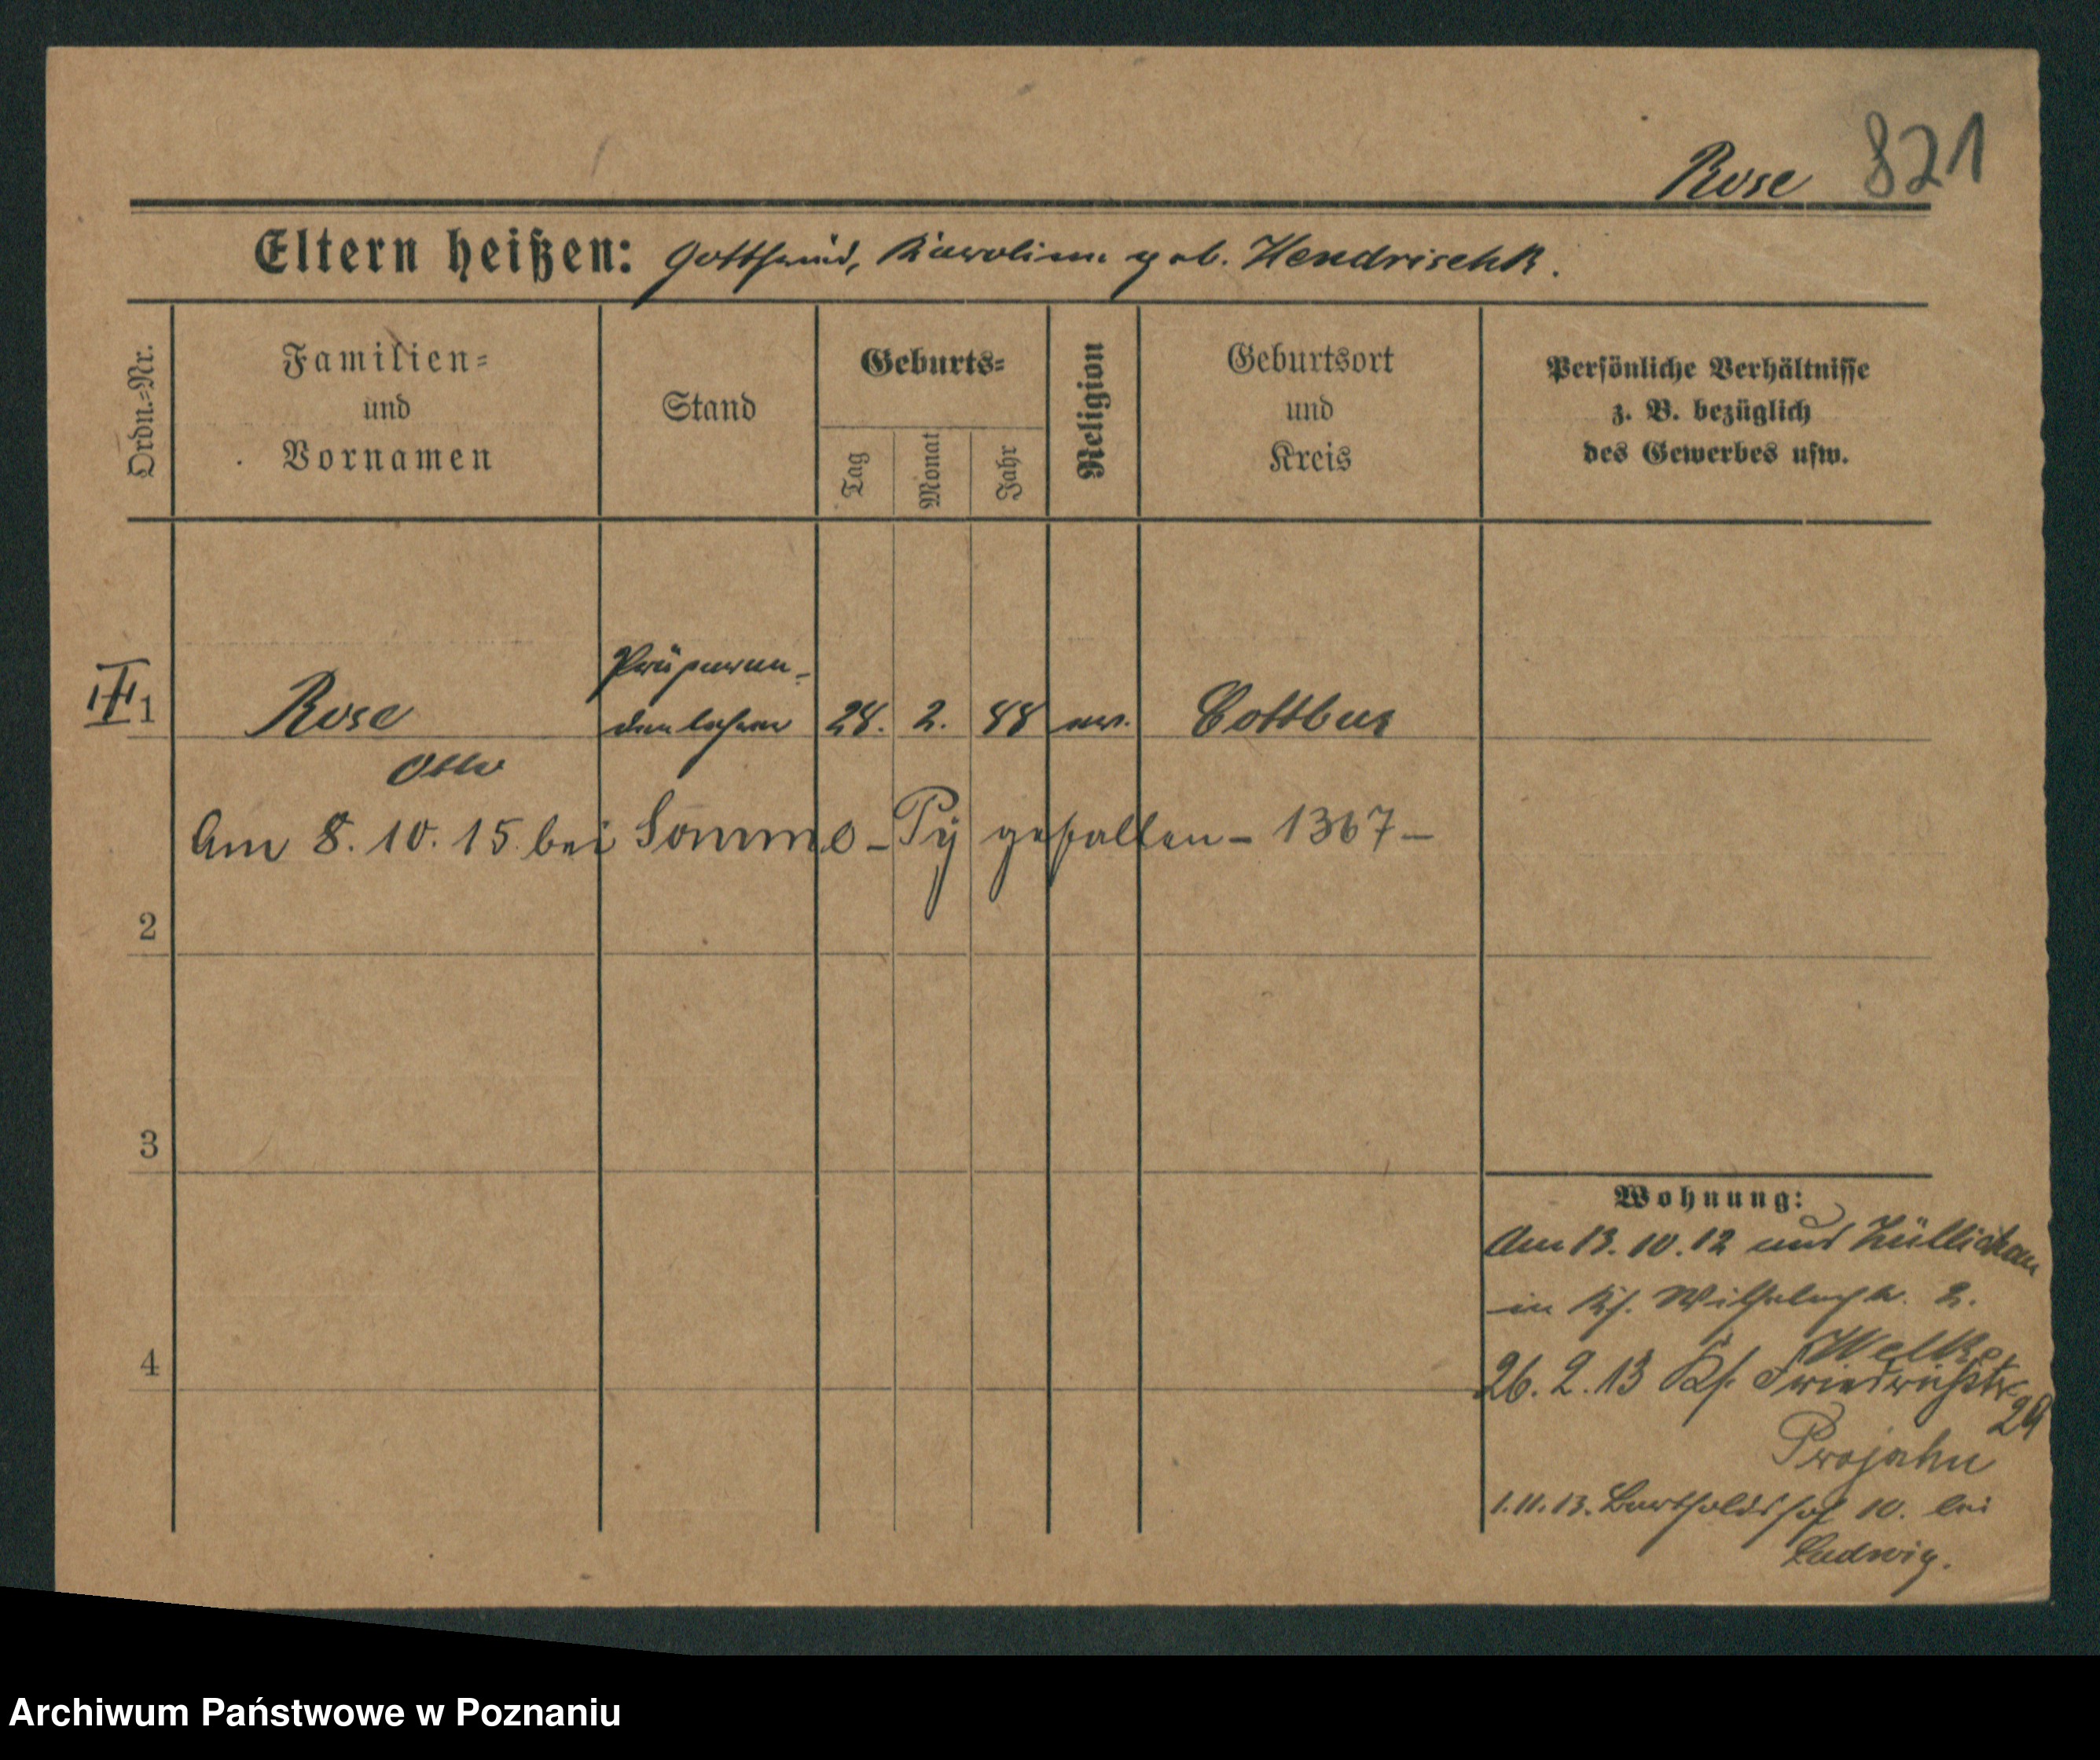 Rose 821
Eltern heißen: Gottfried, Karoline geb. Hendrischk.
Ordn.-Nr.
Familien-
und
Vornamen
Stand
Geburts-
Tag
Monat
Jahr
Religion
Geburtsort
und
Kreis
Persönliche Verhältnisse
z. B. bezüglich
des Gewerbes usw.
Präparan-
1 Rose denlehrer 28. 2. 88 ev. Cottbus
Otto
Am 8. 10. 15 bei Somme-Py gefallen - 1367 -
2
3
4
Wohnung:
Am 13. 10. 12 aus Züllichau
in Ks. Wilhelmstr. 2.
Welke
26. 2. 13 Ks. Friedrichstr.
29
Projahn
1. 11. 13. Bartholdshof 10. bei
Ludwig.
Archiwum Państwowe w Poznaniu